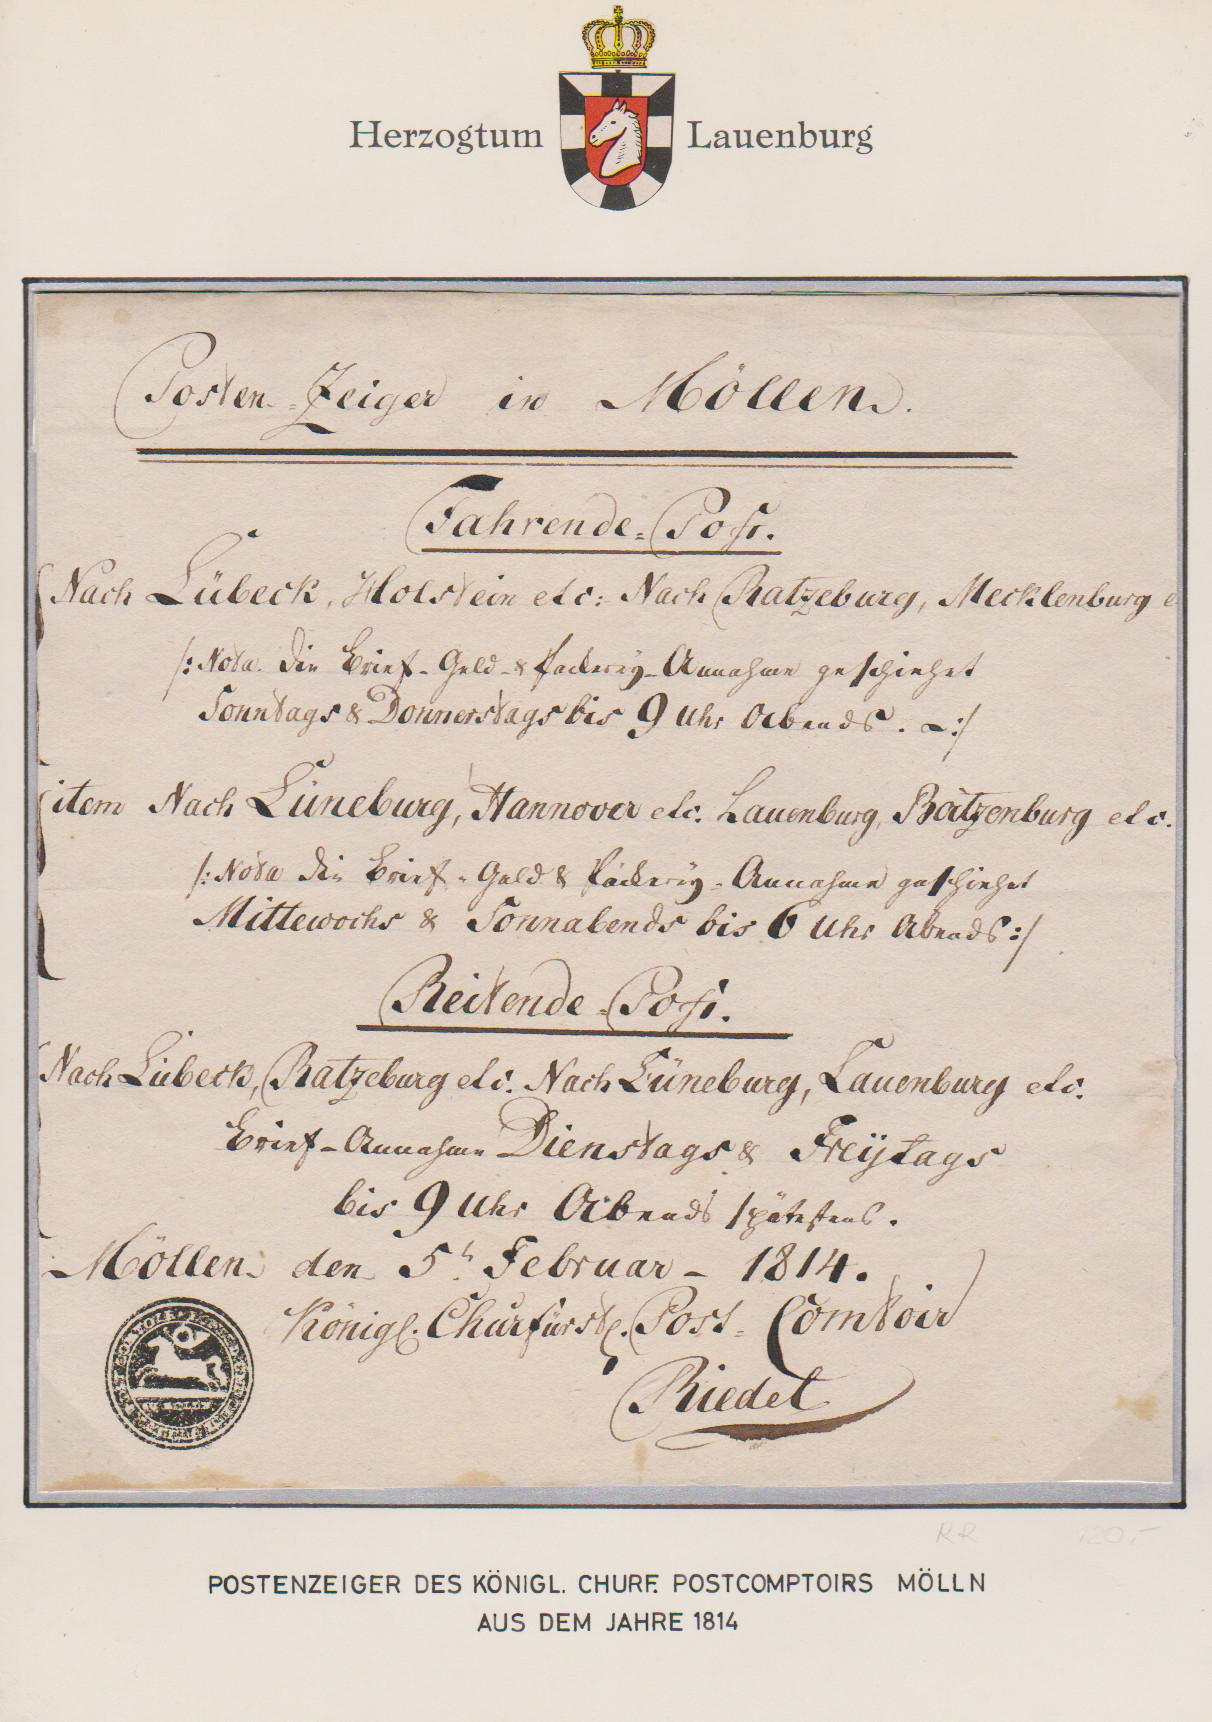 Herzogtum Lauenburg
Posten-Zeiger in Möllen.
Fahrende-Post.
Nach Lübeck, Holstein etc: Nach Ratzeburg, Mecklenburg e
/: Nota. Die Brief- Geld- & Päckerey-Annahme geschiehet
Sonntags & Donnerstags bis 9 Uhr Abends. :/
item Nach Lüneburg, Hannover etc. Lauenburg, Boitzenburg etc.
/: Nota die Brief- Geld & Päckerey-Annahme geschiehet
Mittewochs & Sonnabends bis 6 Uhr Abends :/
Reitende-Post.
Nach Lübeck, Ratzeburg etc. Nach Lüneburg, Lauenburg etc.
Brief-Annahme Dienstags & Freÿtags
bis 9 Uhr Abends spätestens.
Möllen den 5t. Februar - 1814.
Königl. Churfürstl. Post-Comtoir
Riedel
RR 120,-
POSTENZEIGER DES KÖNIGL. CHURF. POSTCOMPTOIRS MÖLLN
AUS DEM JAHRE 1814